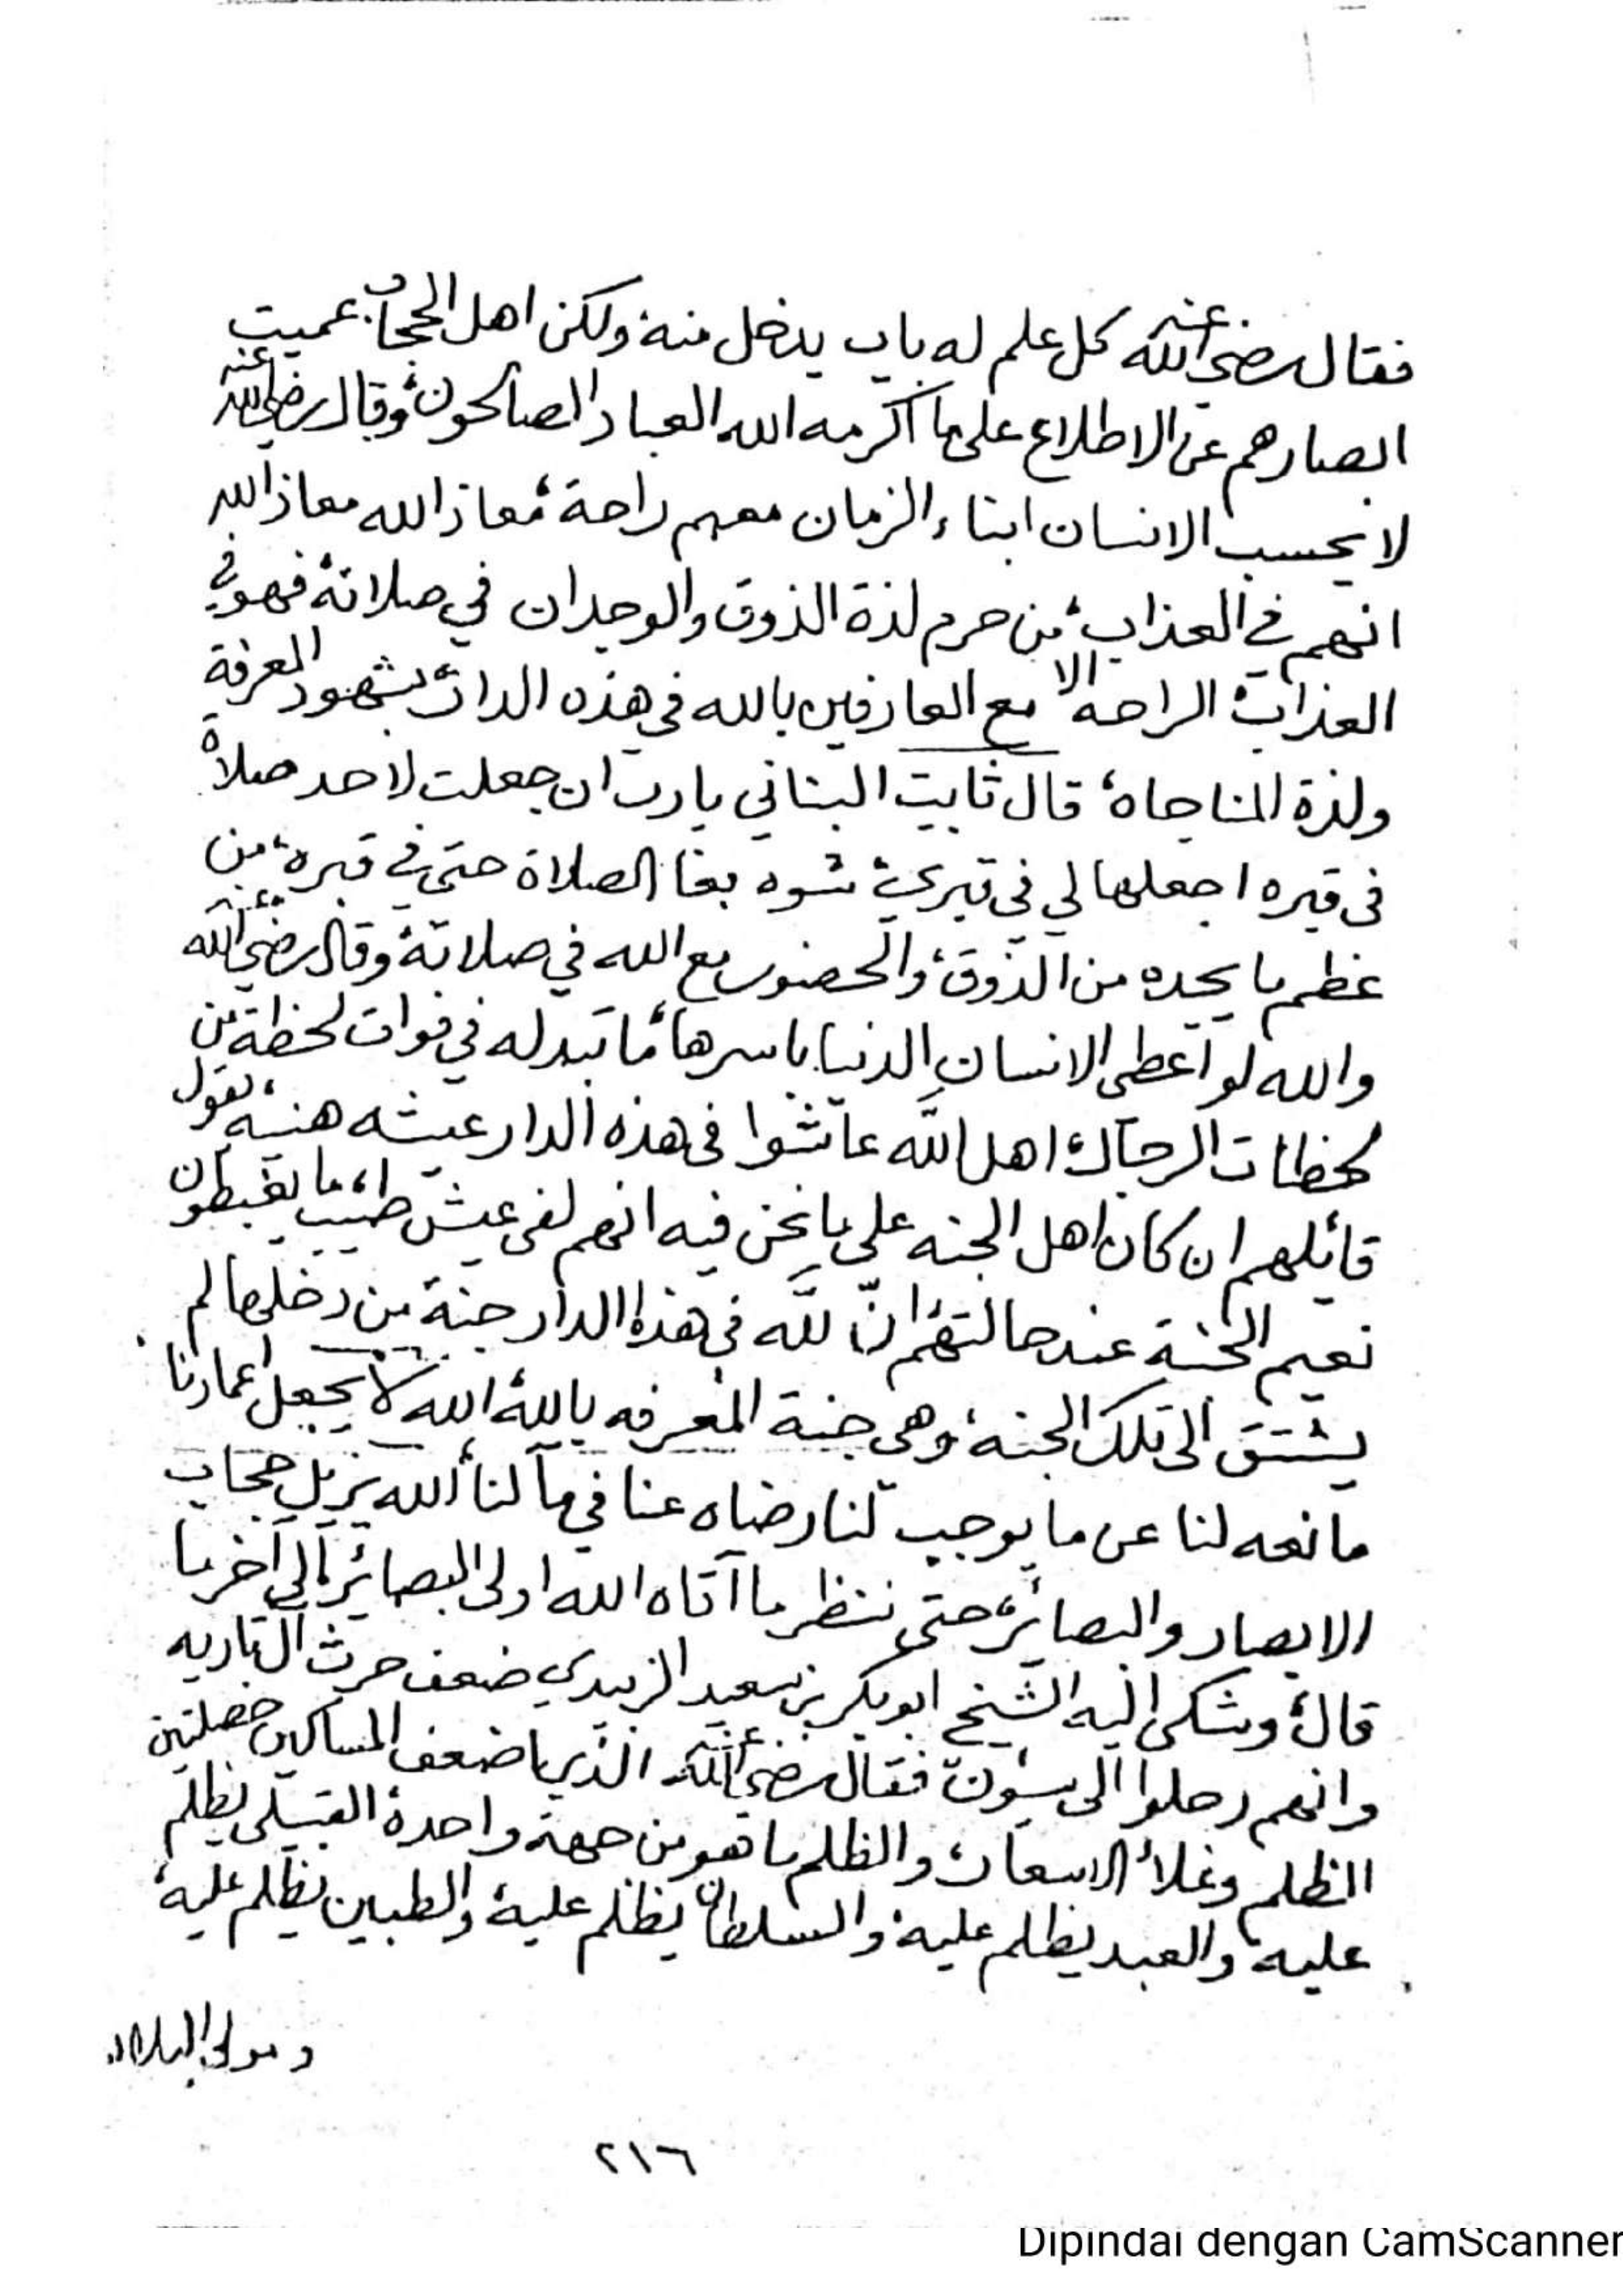 فقال رضي الله عنه كل علم له باب يدخل منه ولكن اهل الحجاب عميت
ابصارهم عن الاطلاع على ما اكرمه الله العباد الصالحون، وقال رضي الله عنه
لا يحسب الانسان ابناء الزمان معهم راحة، معاذ الله معاذ الله
انهم في العذاب، من حرم لذة الذوق والوجدان في صلاته فهو في
العذاب، الراحه الا مع العارفين بالله في هذه الدار، بشهود المعرفة
ولذة المناجاه، قال ثابت البناني يارب ان جعلت لاحد صلاة
في قبره اجعلها لي في قبري، شوه بغا الصلاة حتى في قبره، من
عظم ما يجده من الذوق، والحضور مع الله في صلاته، وقال رضي الله عنه
والله لو اعطى الانسان الدنيا باسرها، ما تبدله في فوات لحظة من
لحظات الرجال، اهل الله عاشوا في هذه الدار عيشه هنيه، يقول
قائلهم ان كان اهل الجنه على ما نحن فيه انهم لفي عيش طيب، ما يغبطون
نعيم الجنة عند حالتهم، ان لله في هذه الدار جنة من دخلها لم
يشتق الى تلك الجنه، وهى جنة المعرفه بالله، الله لا يجعل اعمارنا
مانعه لنا عن ما يوجب لنا رضاه عنا في مآلنا، الله يزيل حجاب
الابصار والبصائر، حتى ننظر ما آتاه الله اولى البصائر، الى آخر ما
قال، وشكى اليه الشيخ ابوبكر بن سعيد الزبيدي ضعف حرث آل تاربه
وانهم رحلوا الى سيؤن، فقال رضي الله عنه الذي اضعف المساكين خصلتين
الظلم وغلاء الاسعار، والظلم ما هو من جهة واحدة، القبيلي يظلم
عليه، والعبد يظلم عليه، والسلطان يظلم عليه، والطبين يظلم عليه،
ومولى البلاد
٢١٦
Dipindai dengan CamScanner